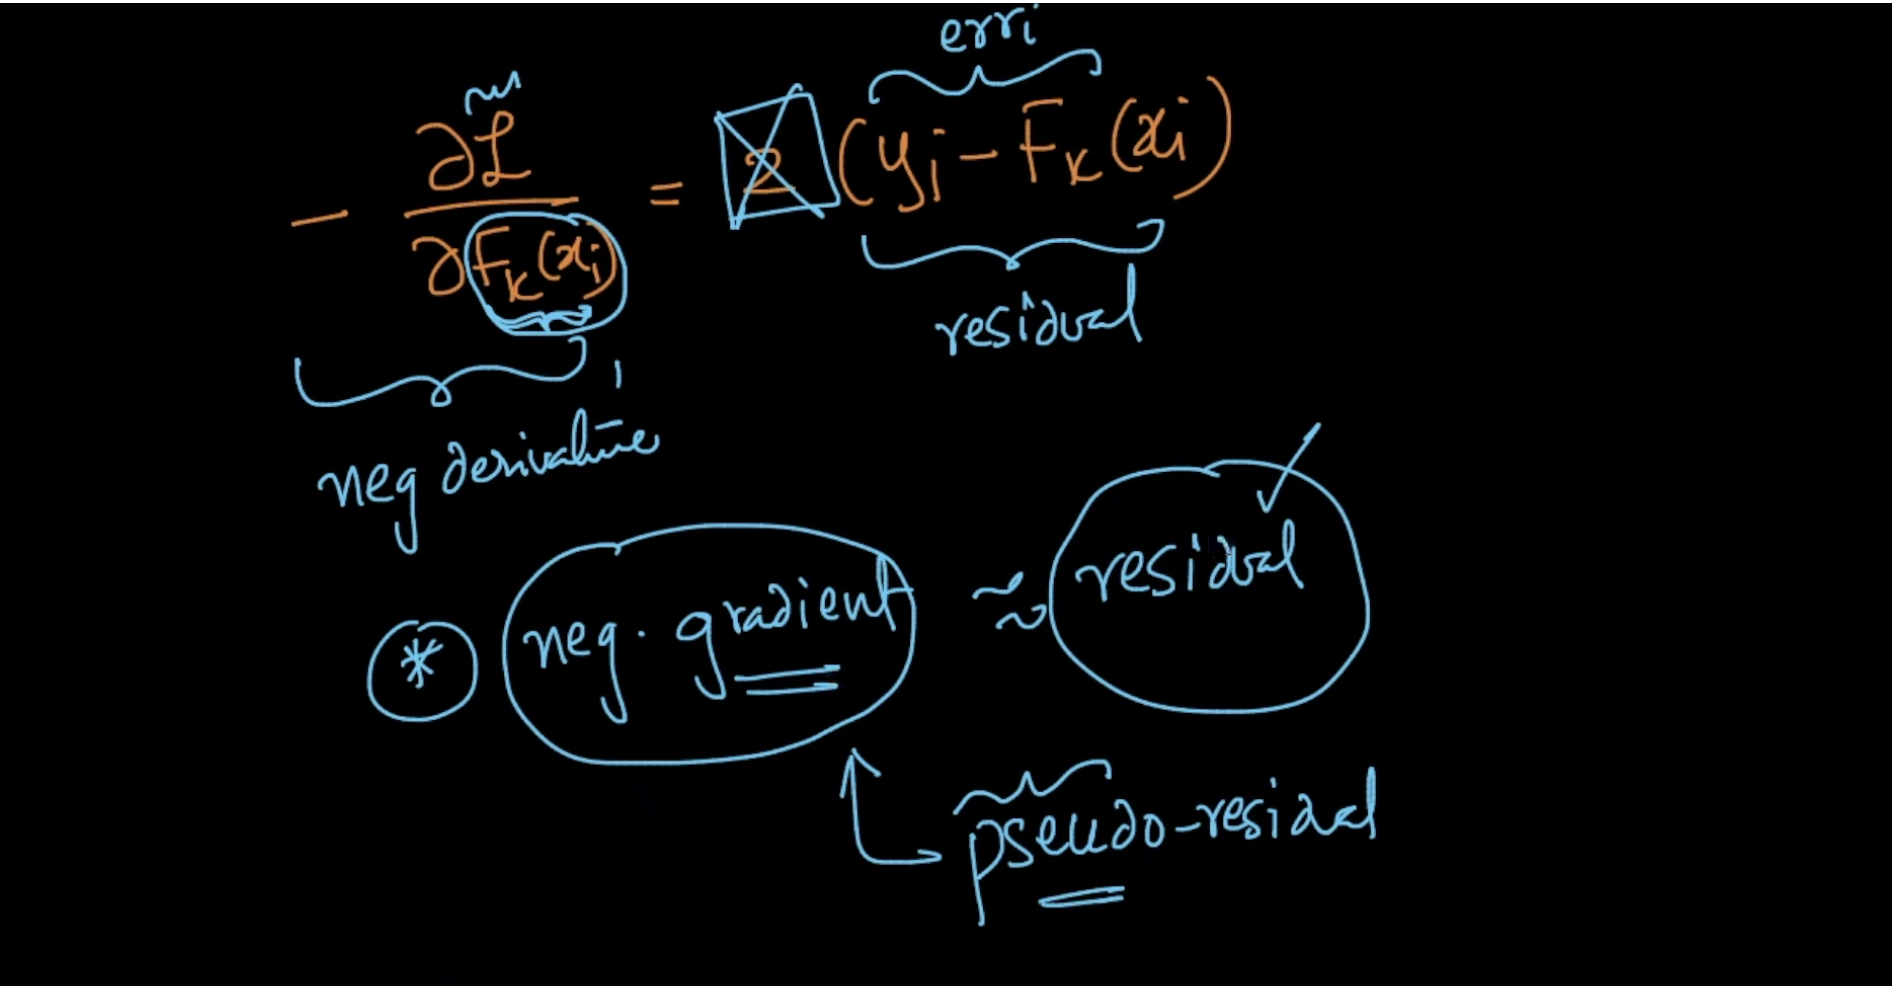 err_i
- ∂L / ∂F_k(x_i) = 2 (y_i - F_k(x_i))
residual
neg derivative
* neg. gradient ≈ residual ✓
pseudo-residual